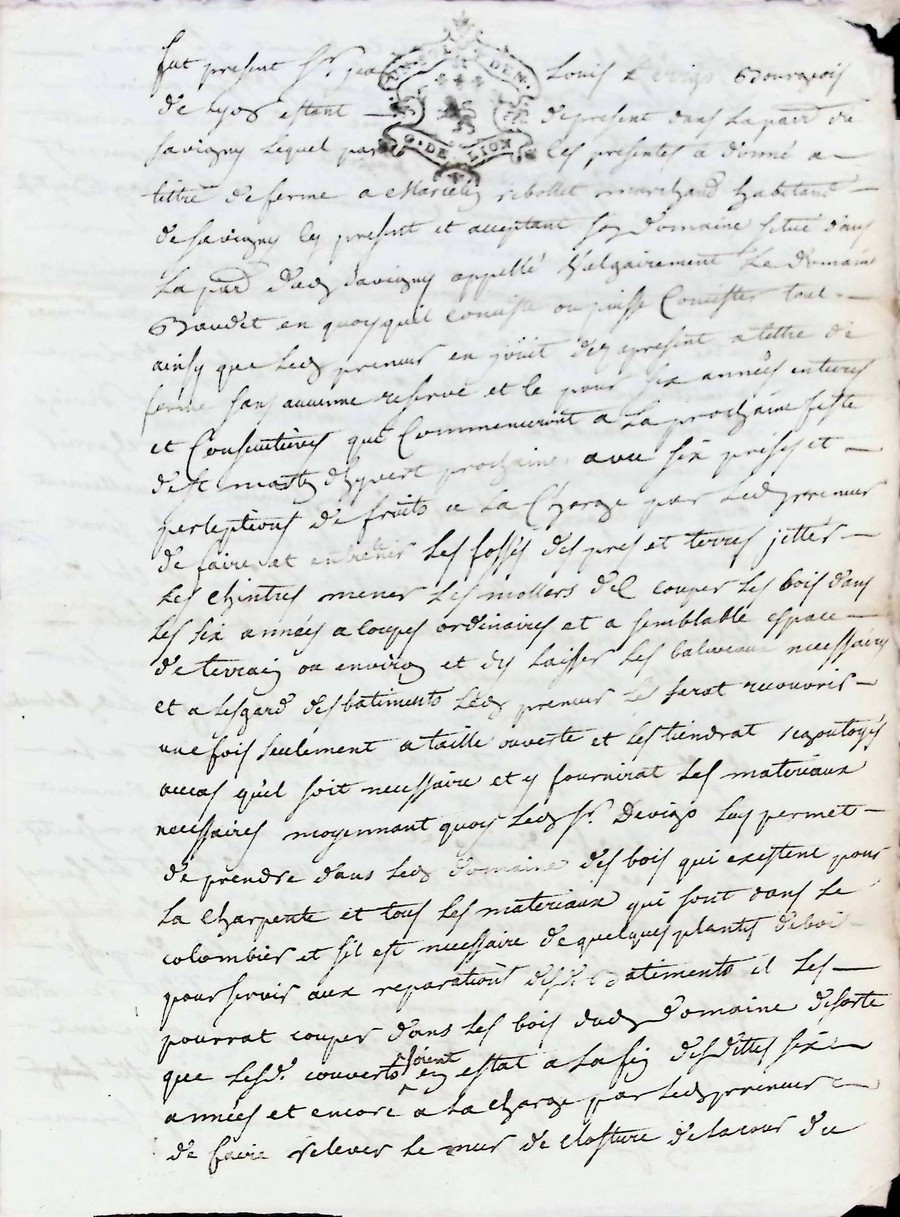 fut present Sr. Louis Devigo Bourgeois
GENERAL DEN.
G. DE LION
de Lyon estant — de present dans la parr de
Savigny lequel par les presentes a donné a —
tittre de ferme a rebollet marchand habitand —
de Savigny cy present et acceptant son domaine situé dans
la parr dud Savigny appellé Vulgairement Le Domaine
Baudet en quoy quil consiste ou puisse Consister tout —
ainsy que led preneur en joüit dez apresent a tittre de
ferme sans aucunne reserve et le pour six années entieres
et Consecutives qui Commenceront a La prochaine feste
de st martin d'hyvert prochaine avec six prises et —
perceptions de fruits a La Charge par led preneur
de faire et entretenir Les fossés des pres et terres jetter —
Les chintres mener Les mollers de couper Les bois dans
Les six années a coupes ordinaires et a semblable espace —
de terrain ou environ et dy laisser Les baliveaux necessaires
et a lesgard des batiments led preneur les ferat recouvrir —
une fois seulement a taille ouverte et les tiendrat regoutoyés
aucas quil soit necessaire et y fournirat Les materiaux
necessaires moyennant quoy led Sr. Devigo luy permet —
de prendre dans led domaine des bois qui existent pour
La Charpente et tous Les materiaux qui sont dans Le
colombier et sil est necessaire de quelques plantes de bois
pour servir aux reparations desd. Batiments il Les —
pourrat couper dans Les bois dud Domaine de sorte
que Lesd. couverts soient en estat a La fin desdittes six —
années et encore a La charge par led preneur —
de faire relever Le mur de closture de la cour du